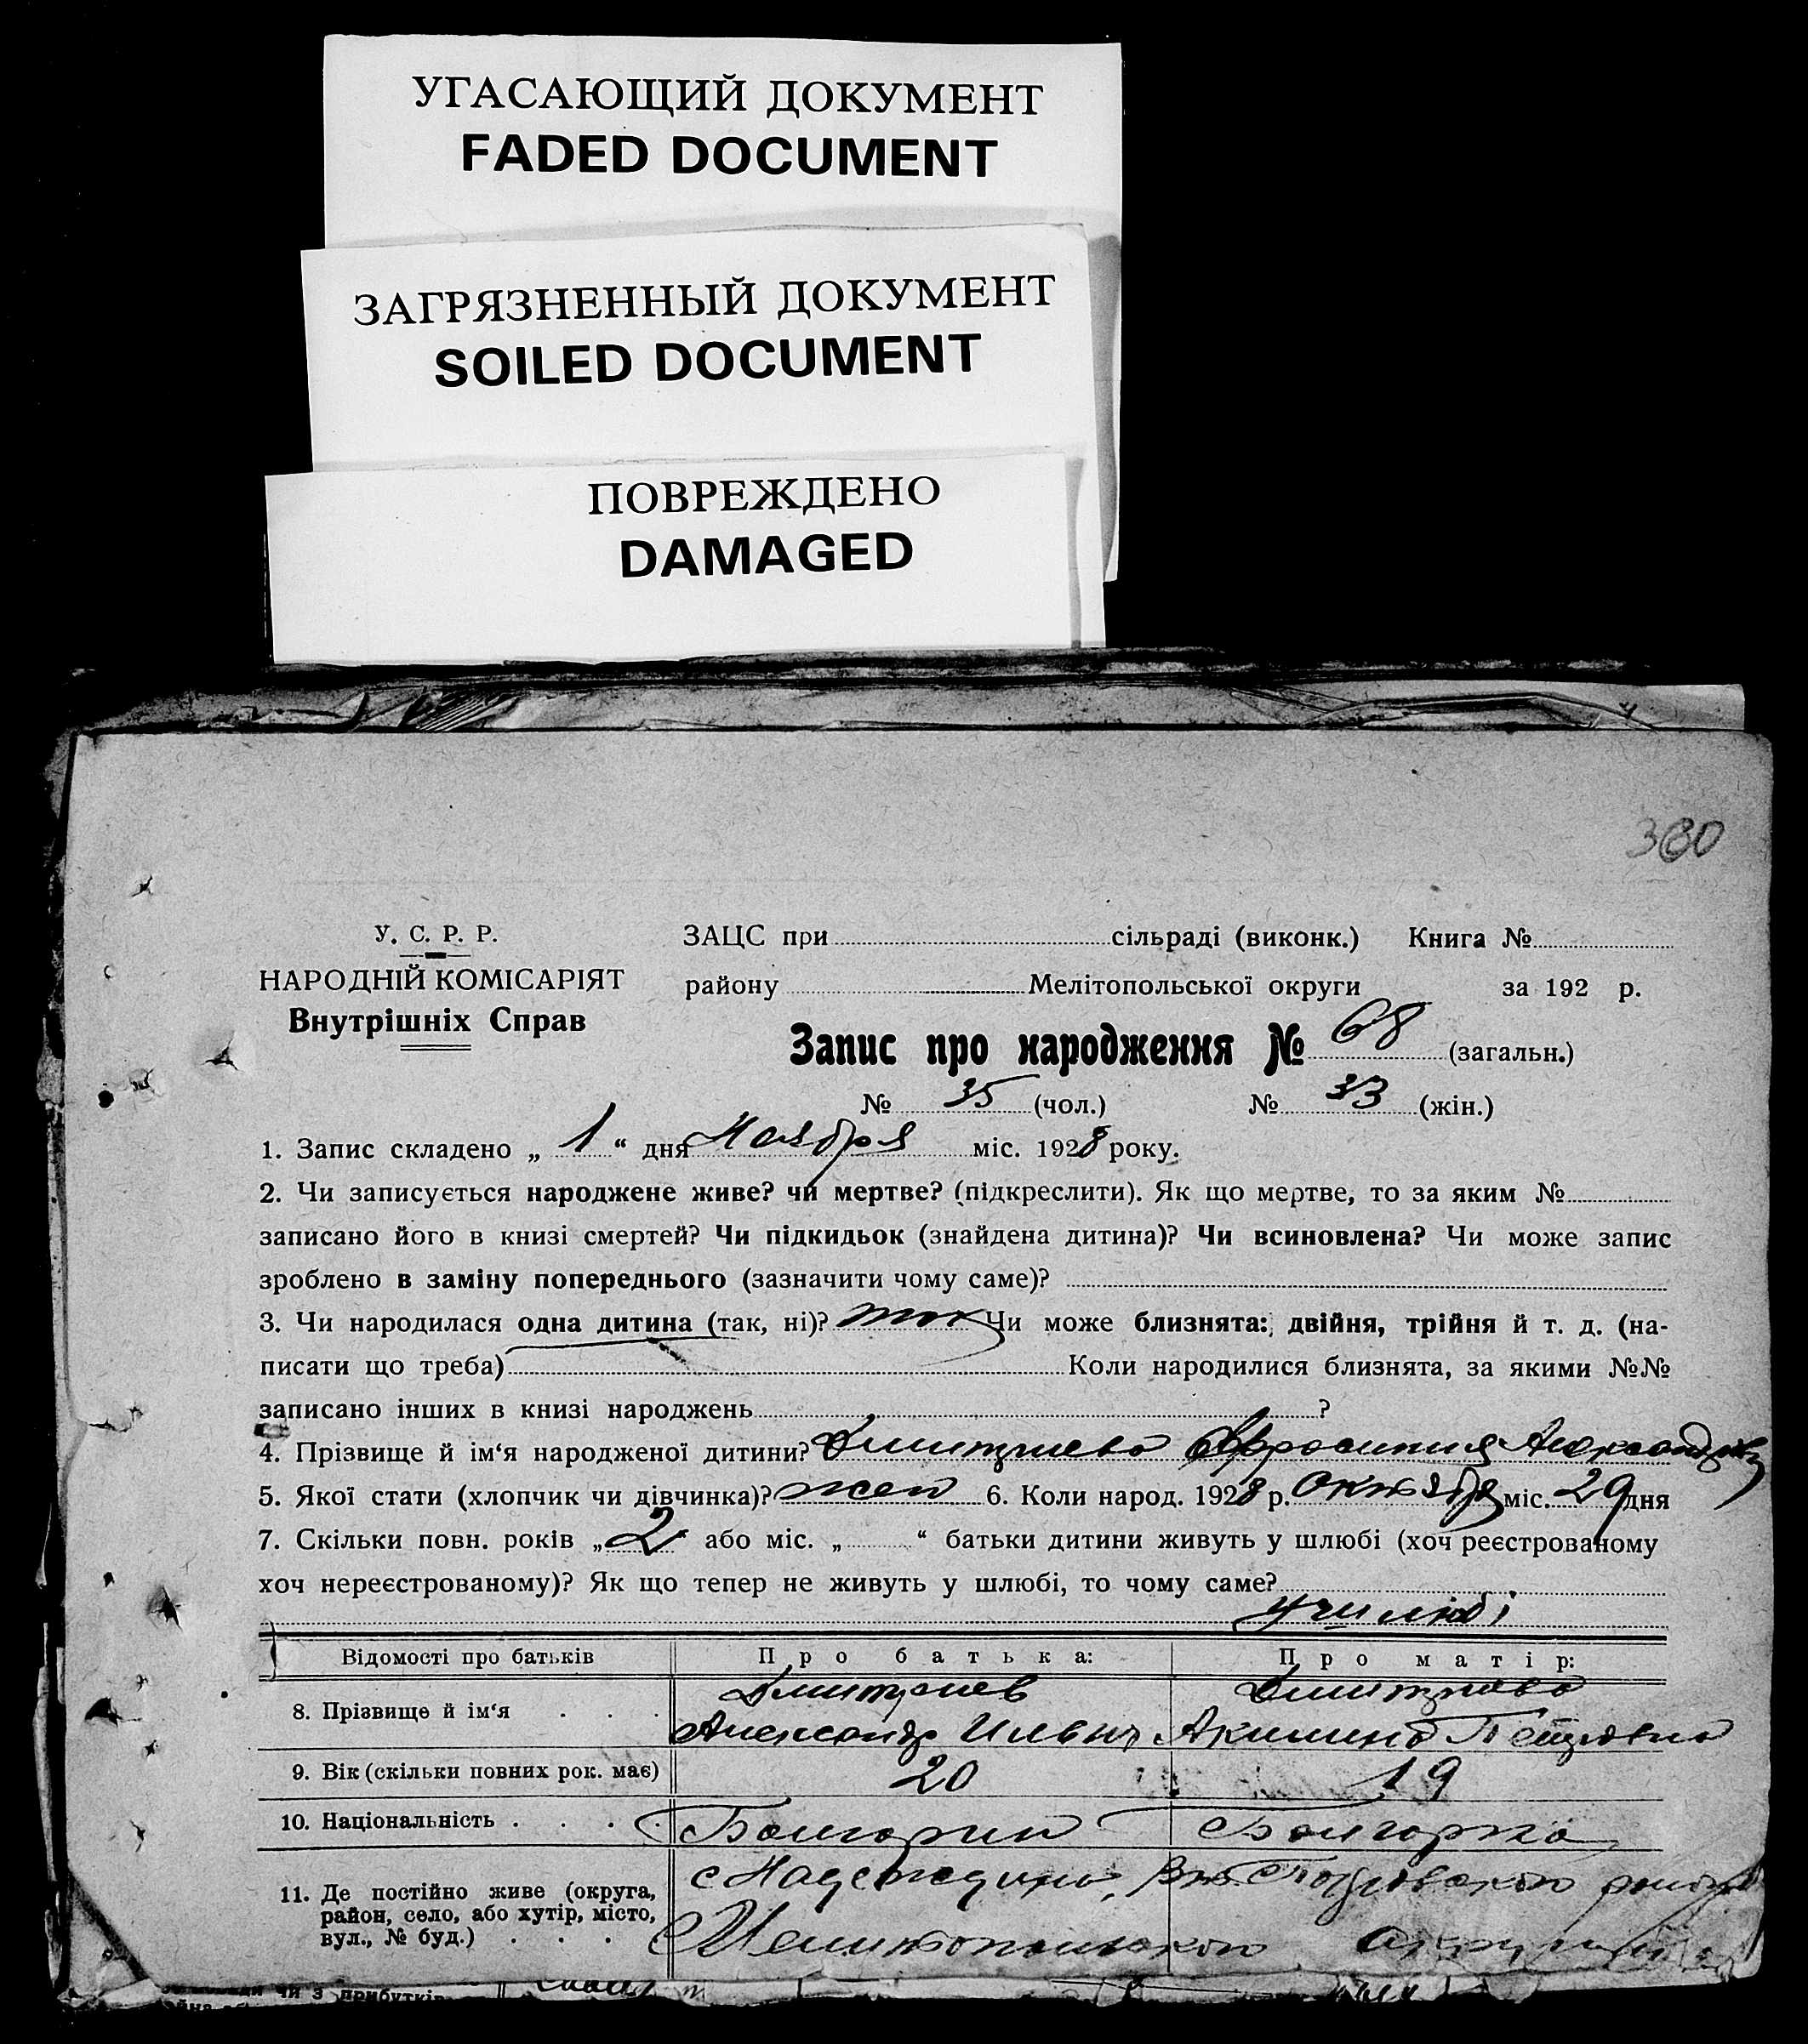 УГАСАЮЩИЙ ДОКУМЕНТ
FADED DOCUMENT
ЗАГРЯЗНЕННЫЙ ДОКУМЕНТ
SOILED DOCUMENT
ПОВРЕЖДЕНО
DAMAGED
У. С. Р. Р.
НАРОДНІЙ КОМІСАРІЯТ
Внутрішніх Справ
ЗАЦС при сільраді (виконк.) Книга №
району Мелітопольської округи за 192 р.
Запис про народження № 68 (загальн.)
№ 35 (чол.) № 33 (жін.)
1. Запис складено „ 1 “ дня Ноября міс. 1928 року.
2. Чи записується народжене живе? чи мертве? (підкреслити). Як що мертве, то за яким №
записано його в книзі смертей? Чи підкидьок (знайдена дитина)? Чи всиновлена? Чи може запис
зроблено в заміну попереднього (зазначити чому саме)?
3. Чи народилася одна дитина (так, ні)? так Чи може близнята: двійня, трійня й т. д. (на-
писати що треба) Коли народилися близнята, за якими №№
записано інших в книзі народжень ?
4. Прізвище й ім‘я народженої дитини? Дмитриева Ефросиния
5. Якої стати (хлопчик чи дівчинка)? жен 6. Коли народ. 1928 р. октября міс. 29 дня
7. Скільки повн. років „ 2 “ або міс. „ “ батьки дитини живуть у шлюбі (хоч реєстрованому
хоч нереєстрованому)? Як що тепер не живуть у шлюбі, то чому саме?
у шлюбі
Відомості про батьків Про батька: Про матір:
8. Прізвище й ім‘я Дмитриев Дмитриева
Александр Ильич Акилина Петровна
9. Вік (скільки повних рок. має) 20 19
10. Національність Болгарин Болгарка
11. Де постійно живе (округа,
район, село, або хутір, місто,
вул., № буд.)
с Надеждино, района
Мелитопольского округи
чи з прибутків